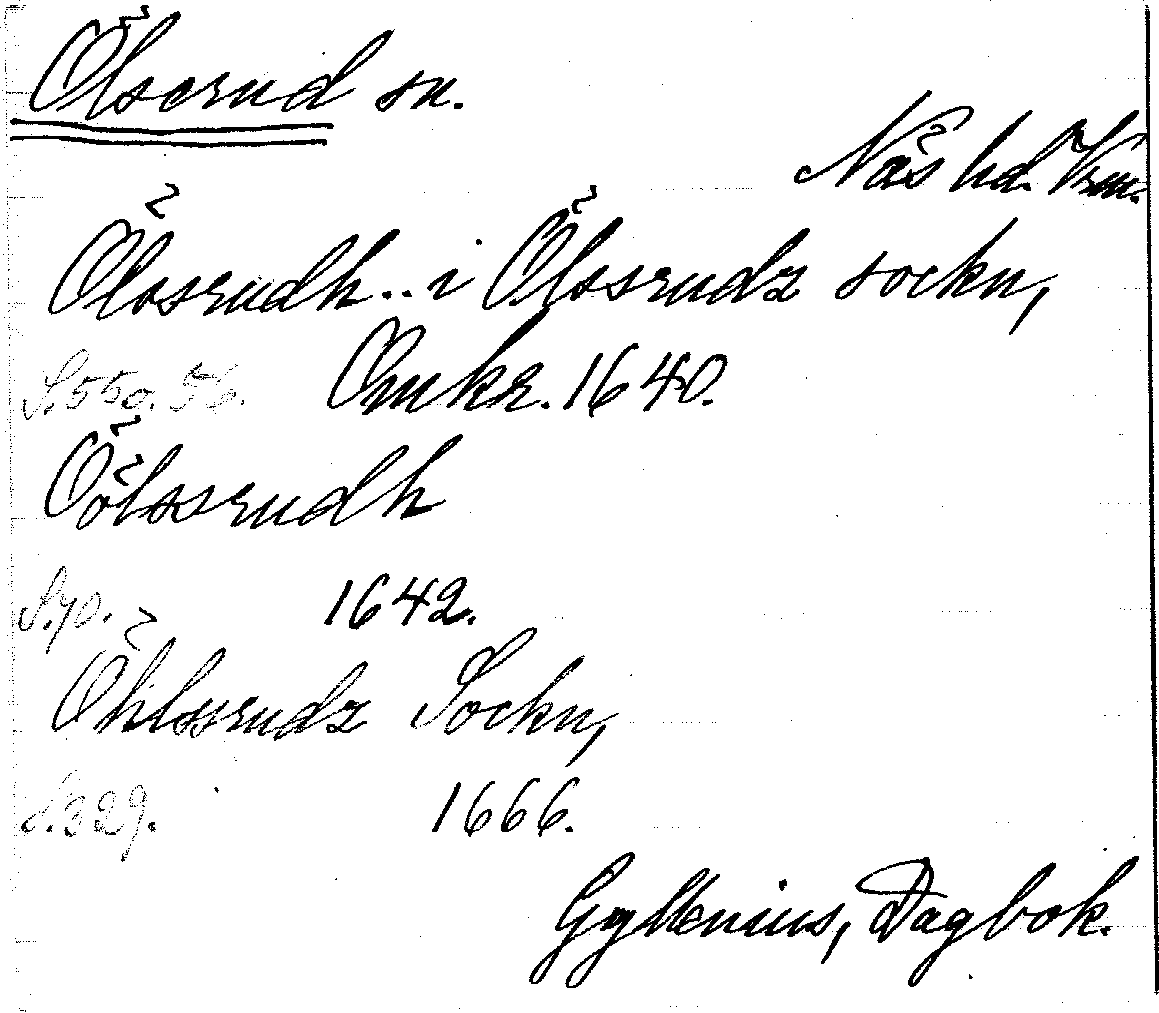 Ölserud sn.
Näs hd. Vrm.
Ölossrudh.. i Ölossrudz sockn,
S. 550. 56. Omkr. 1640.
Öölssrudh
S. 70. 1642.
Öhlssrudz Sockn,
S. 329. 1666.
Gyllenius, Dagbok.